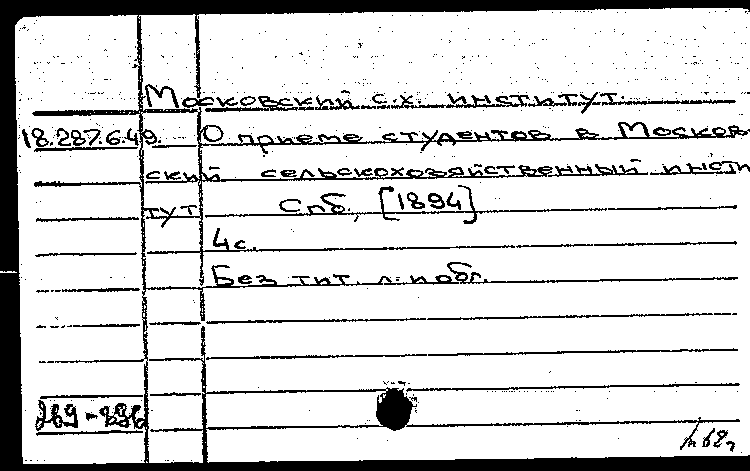 Московский с.х. институт.
18.287.6.49. О приеме студентов в Москов
ский сельскохозяйственный инсти
тут Спб, [1894]
4с.
Без тит. л. и обл.